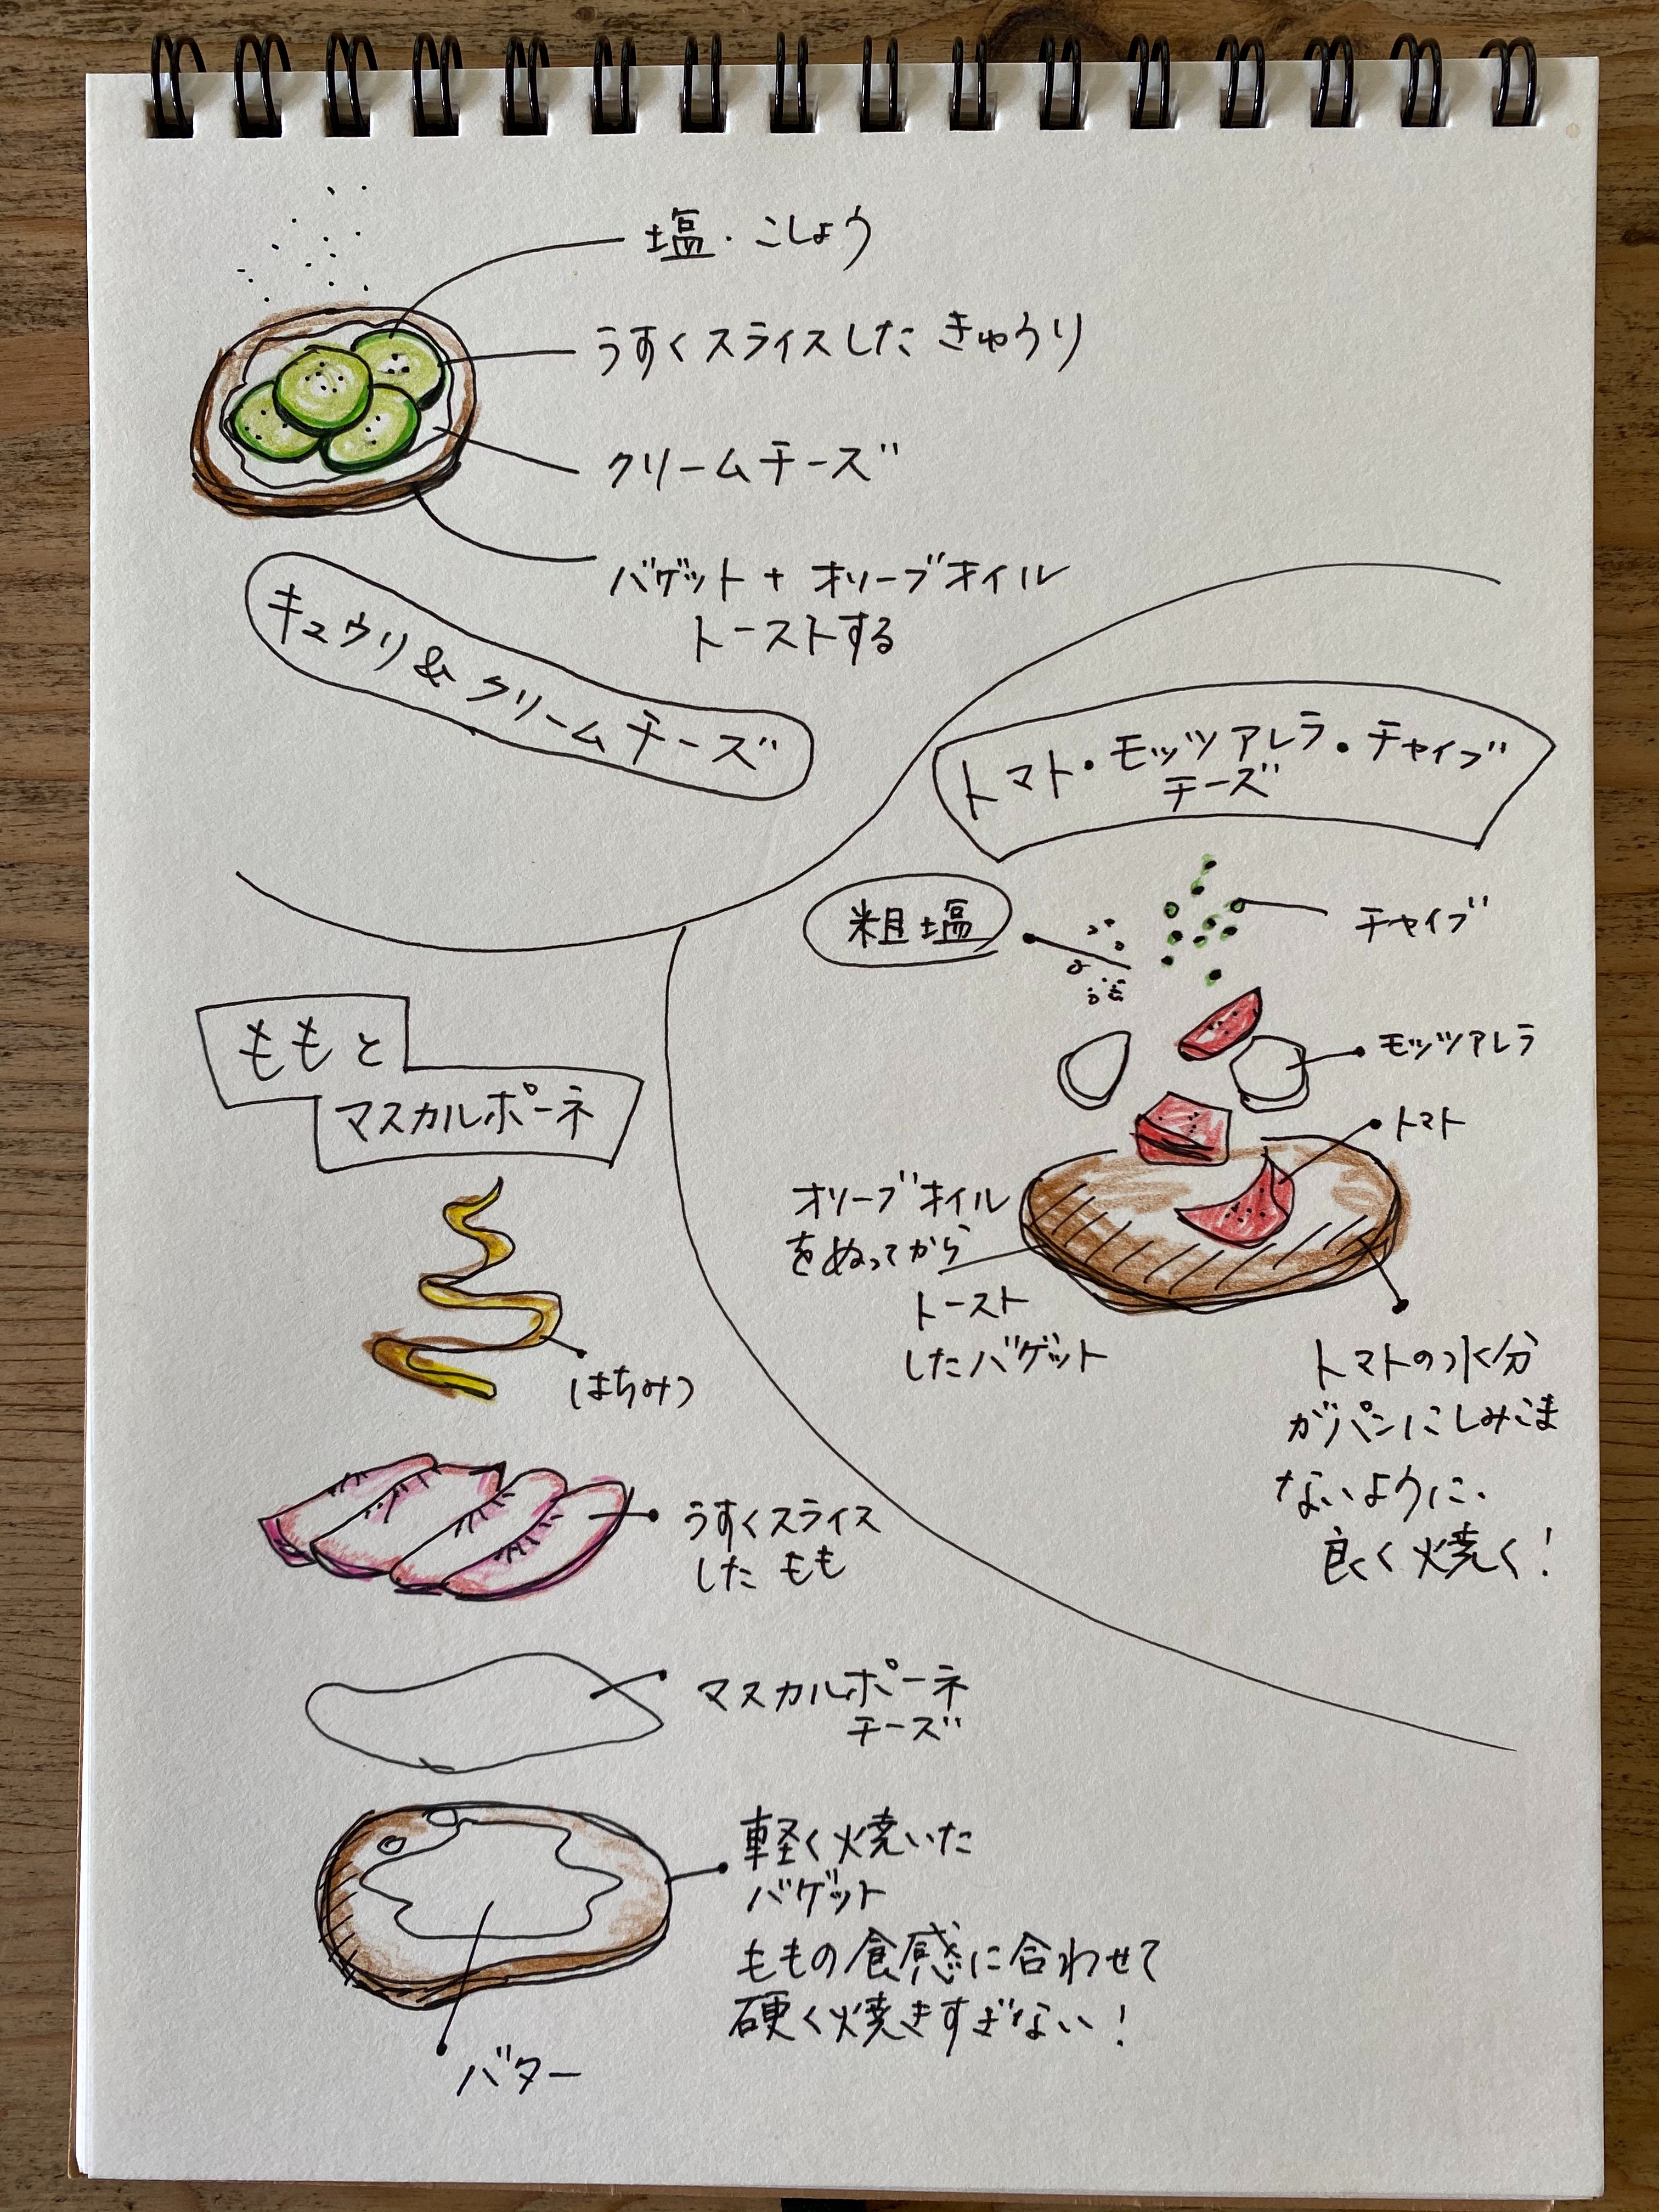 塩・こしょう
うすくスライスした きゅうり
クリームチーズ
バゲット + オリーブオイル
トーストする
キュウリ & クリームチーズ
トマト・モッツアレラ・チャイブ
チーズ
粗塩
チャイブ
モッツアレラ
トマト
オリーブオイル
をぬってから
トースト
したバゲット
トマトの水分
がパンにしみこま
ないように、
良く焼く!
ももと
マスカルポーネ
はちみつ
うすくスライス
した もも
マスカルポーネ
チーズ
軽く焼いた
バゲット
ももの食感に合わせて
硬く焼きすぎない!
バター